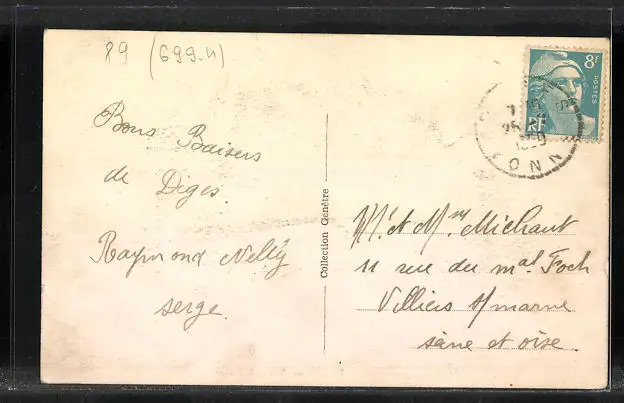 89 (699-4)
Bons Baisers
de Diges.
Raymond Nelly
serge.
Collection Genêtre
8f
POSTES
RF
25
YONNE
Mr et Mme Michaut
11 rue du mal Foch
Villiers s/marne
seine et oise.